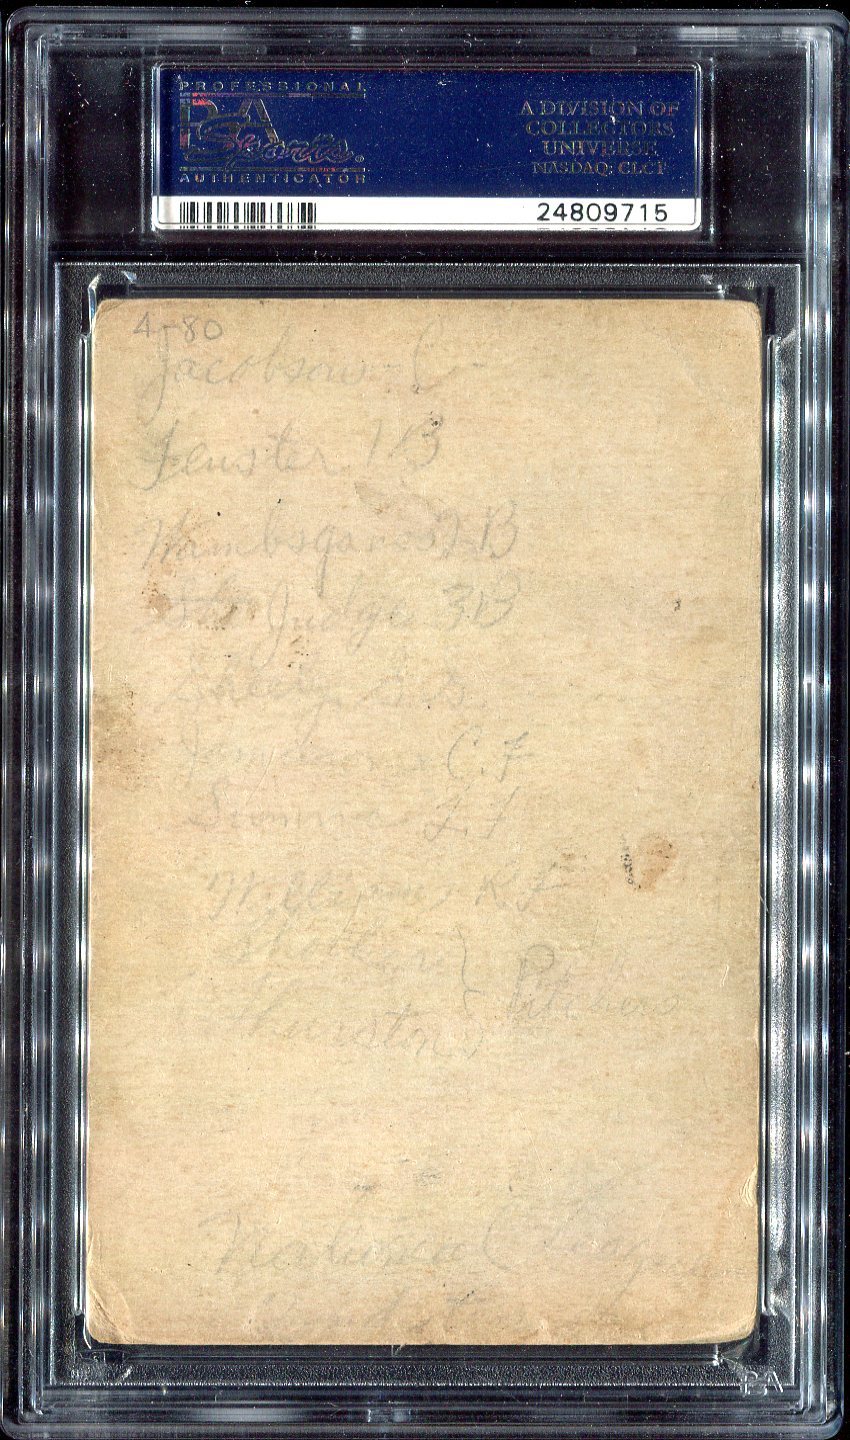 PROFESSIONAL
PSA
Sports
AUTHENTICATOR
A DIVISION OF
COLLECTORS
UNIVERSE
NASDAQ: CLCT
24809715
4-80
Jacobson - C -
Fewster 1B
Wambsganss 2B
Judge 3B
Sheely S.S.
Jamieson C.F
Summa L.F
Williams R.F
Shocker
Thurston } Pitchers
National League
PSA